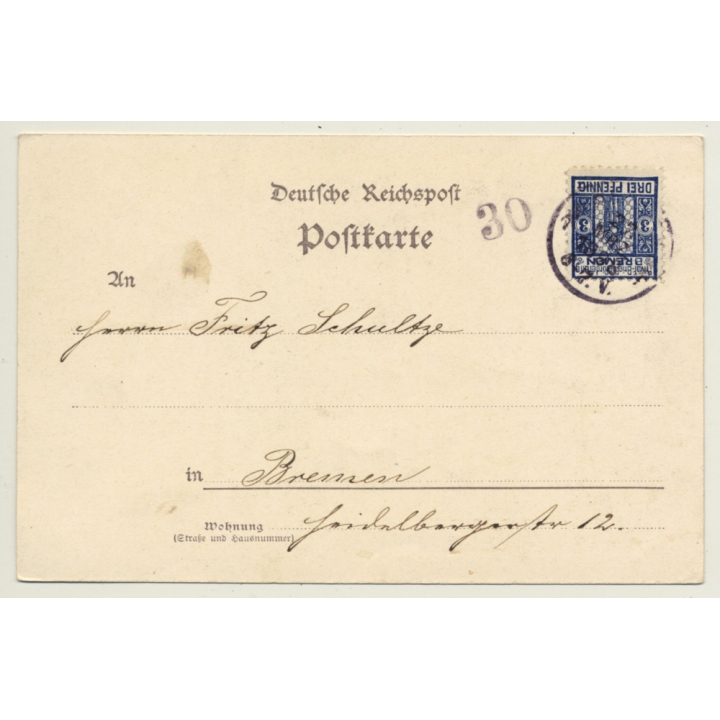 Deutsche Reichspost
30
Postkarte
DREI PFENNIG
3 3
BREMEN
An
Herrn Fritz Schultze
in Bremen
Wohnung Heidelbergerstr 12.
(Straße und Hausnummer)